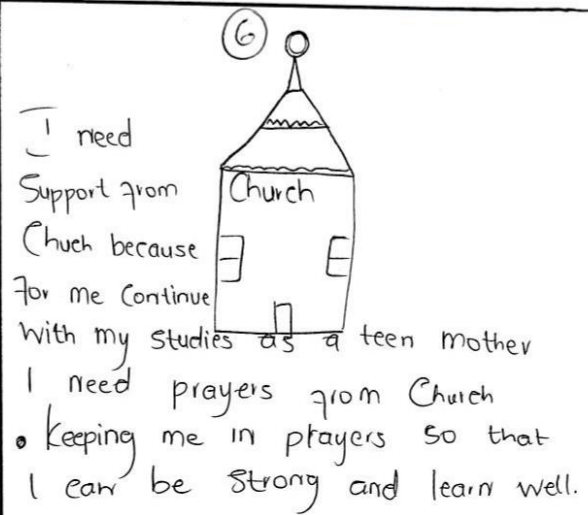 6
I need
Support from
Church
Chuch because
For me Continue
With my studies as a teen mother
I need prayers from Church
• Keeping me in prayers so that
I can be strong and learn well.